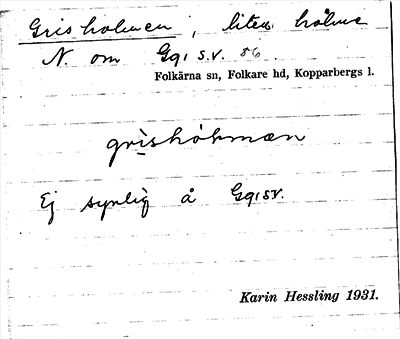 Grisholmen, liten holme
N. om Gqı s.v. 86.
Folkärna sn, Folkare hd, Kopparbergs l.
grishòlmæn
Ej synlig å Gqı sv.
Karin Hessling 1931.